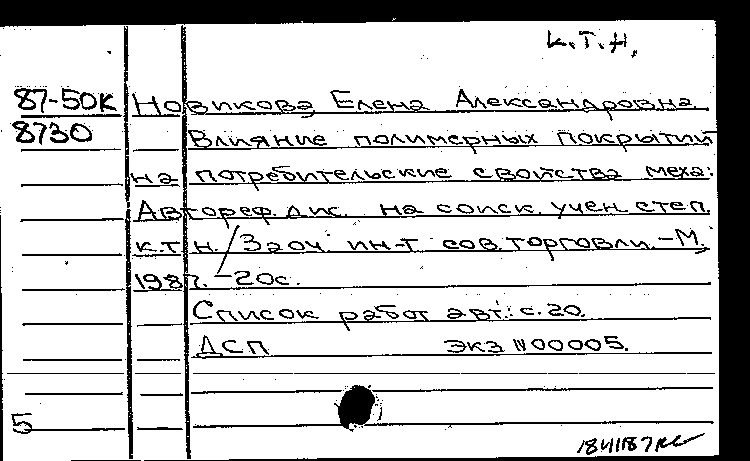 к.т.н.
87-50К Новикова Елена Александровна
8730 Влияние полимерных покрытий
на потребительские свойства меха:
Автореф. дис. на соиск. учен. степ.
к.т.н. / Заоч. ин-т сов. торговли. - М.,
1987. - 20с.
Список работ авт.: с. 20.
ДСП экз N 00005.
5